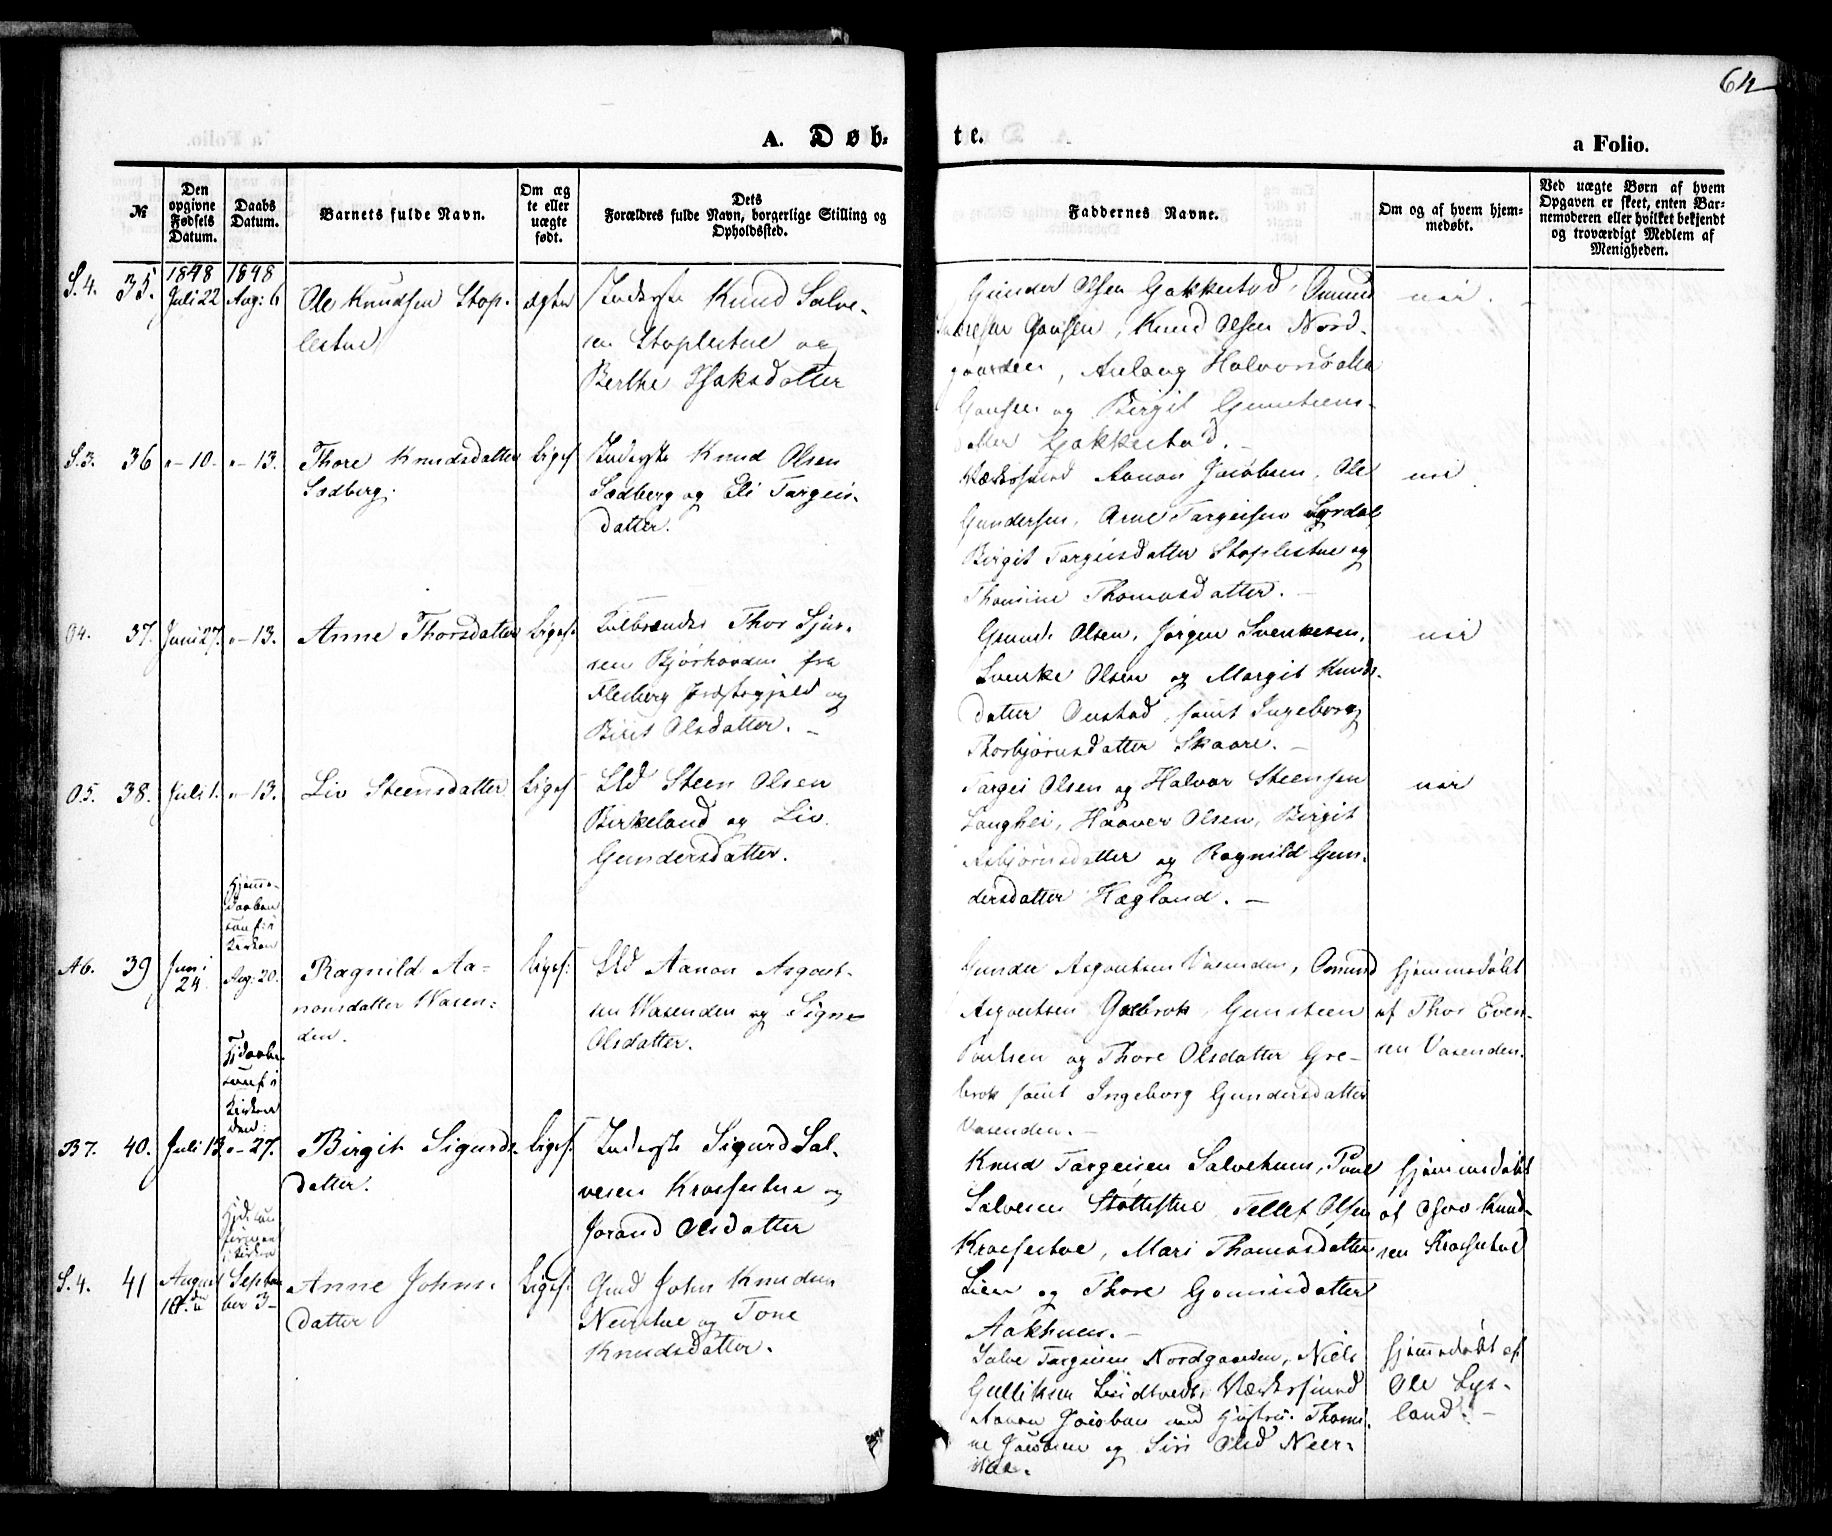 64
A. Døb-
te.
a Folio.
№
Den opgivne Fødsels Datum.
Daabs Datum.
Barnets fulde Navn.
Om ægte eller uægte født.
Dets Forældres fulde Navn, borgerlige Stilling og Opholdssted.
Faddernes Navne.
Om og af hvem hjemmedøbt.
Ved uægte Børn af hvem Opgaven er skeet, enten Barnemoderen eller hvilket bekjendt og troværdigt Medlem af Menigheden.
S. 4. 35. 1848 Juli 22 1848 Aug: 6
Ole Knudsen Stop-
lestue
ægte
Inderste Knud Salve-
sen Stoplestue og
Berthe Isaksdatter
Gunder Olsen Gakkestad, Omund
Gousen, Knud Olsen Nord-
gaarden, Aslaug Halvorsdatter
Gousen og Birgit Gunsteens-
datter Gakkestad. -
nei
S. 3. 36 - 10. - 13.
Thore Knudsdatter
Sødberg.
Liges
Inderste Knud Olsen
Sødberg og Eli Targeis-
datter.
Værkssmed Aanon Jacobsen, Ole
Gundersen, Arne Targeisen Lyrdal
Birgit Targeisdatter Stoplestue og
Thomine Thomasdatter. -
nei
O 4. 37. Juni 27. - 13.
Anne Thorsdatter
Liges.
Kulbrænder Thor Sjur-
sen Bjørhovden fra
Flesberg Præstegjeld og
Birit Olsdatter. -
Gunder Olsen, Jørgen Svenkesen,
Svenke Olsen og Margit Knuds-
datter Austad, samt Ingeborg
Thorbjørnsdatter Skaare. -
nei
O 5. 38. Juli 1. - 13.
Liv Steensdatter
Ligef
Lld Steen Olsen
Birkeland og Liv
Gundersdatter.
Targei Olsen og Halvor Steensen
Langhei, Haaver Olsen, Birgit
Asbjørnsdatter og Ragnild Gun-
dersdatter Hægland. -
nei
Hjemme-
daaben
conf: i
Kirken
A 6. 39 Juni 24 Aug: 20.
Ragnild Aa-
nonsdatter Vasen-
den.
Ligef:
Lld Aanon Asgout-
sen Vasenden og Signe
Olsdatter.
Gunder Asgoutsen Vasenden, Omund
Asgoutsen Grebrok, Gunsteen
Poulsen og Thore Olsdatter Gre-
brok samt Ingeborg Gundersdatter
Vasenden. -
hjemmedøbt
af Thor Even-
sen Vasenden.
Hjdaaben
conf: i
Kirken
den:
B 7. 40. Juli 13 - 27.
Birgit Sigurds-
datter.
Ligef.
Inderste Sigurd Sal-
vesen Kroesestue og
Jorand Olsdatter
Knud Targeisen Salvehuus, Poul
Salvesen Støttestue, Tellef Olsen
Kroesestue, Mari Thomasdatter
Lien og Thore Gounisdatter
Aakhuus. -
hjemmedøbt
af Gjeru Knud-
sen Kroesestue
S. 4. 41 August 10de Septem
ber 3-
Anne Johns-
datter
Ligef:
Gmd John Knudsen
Neirstue og Tone
Knudsdatter.
Salve Targeisen Nordgaarden, Niels
Gulliksen Lindtvedt, Værkssmed
Aanon Jacobsen med Hustru Thomi-
ne Jacobsen og Siri Olsd Neer-
stue.
hjemmedøbt af
Ole Lys-
land. -